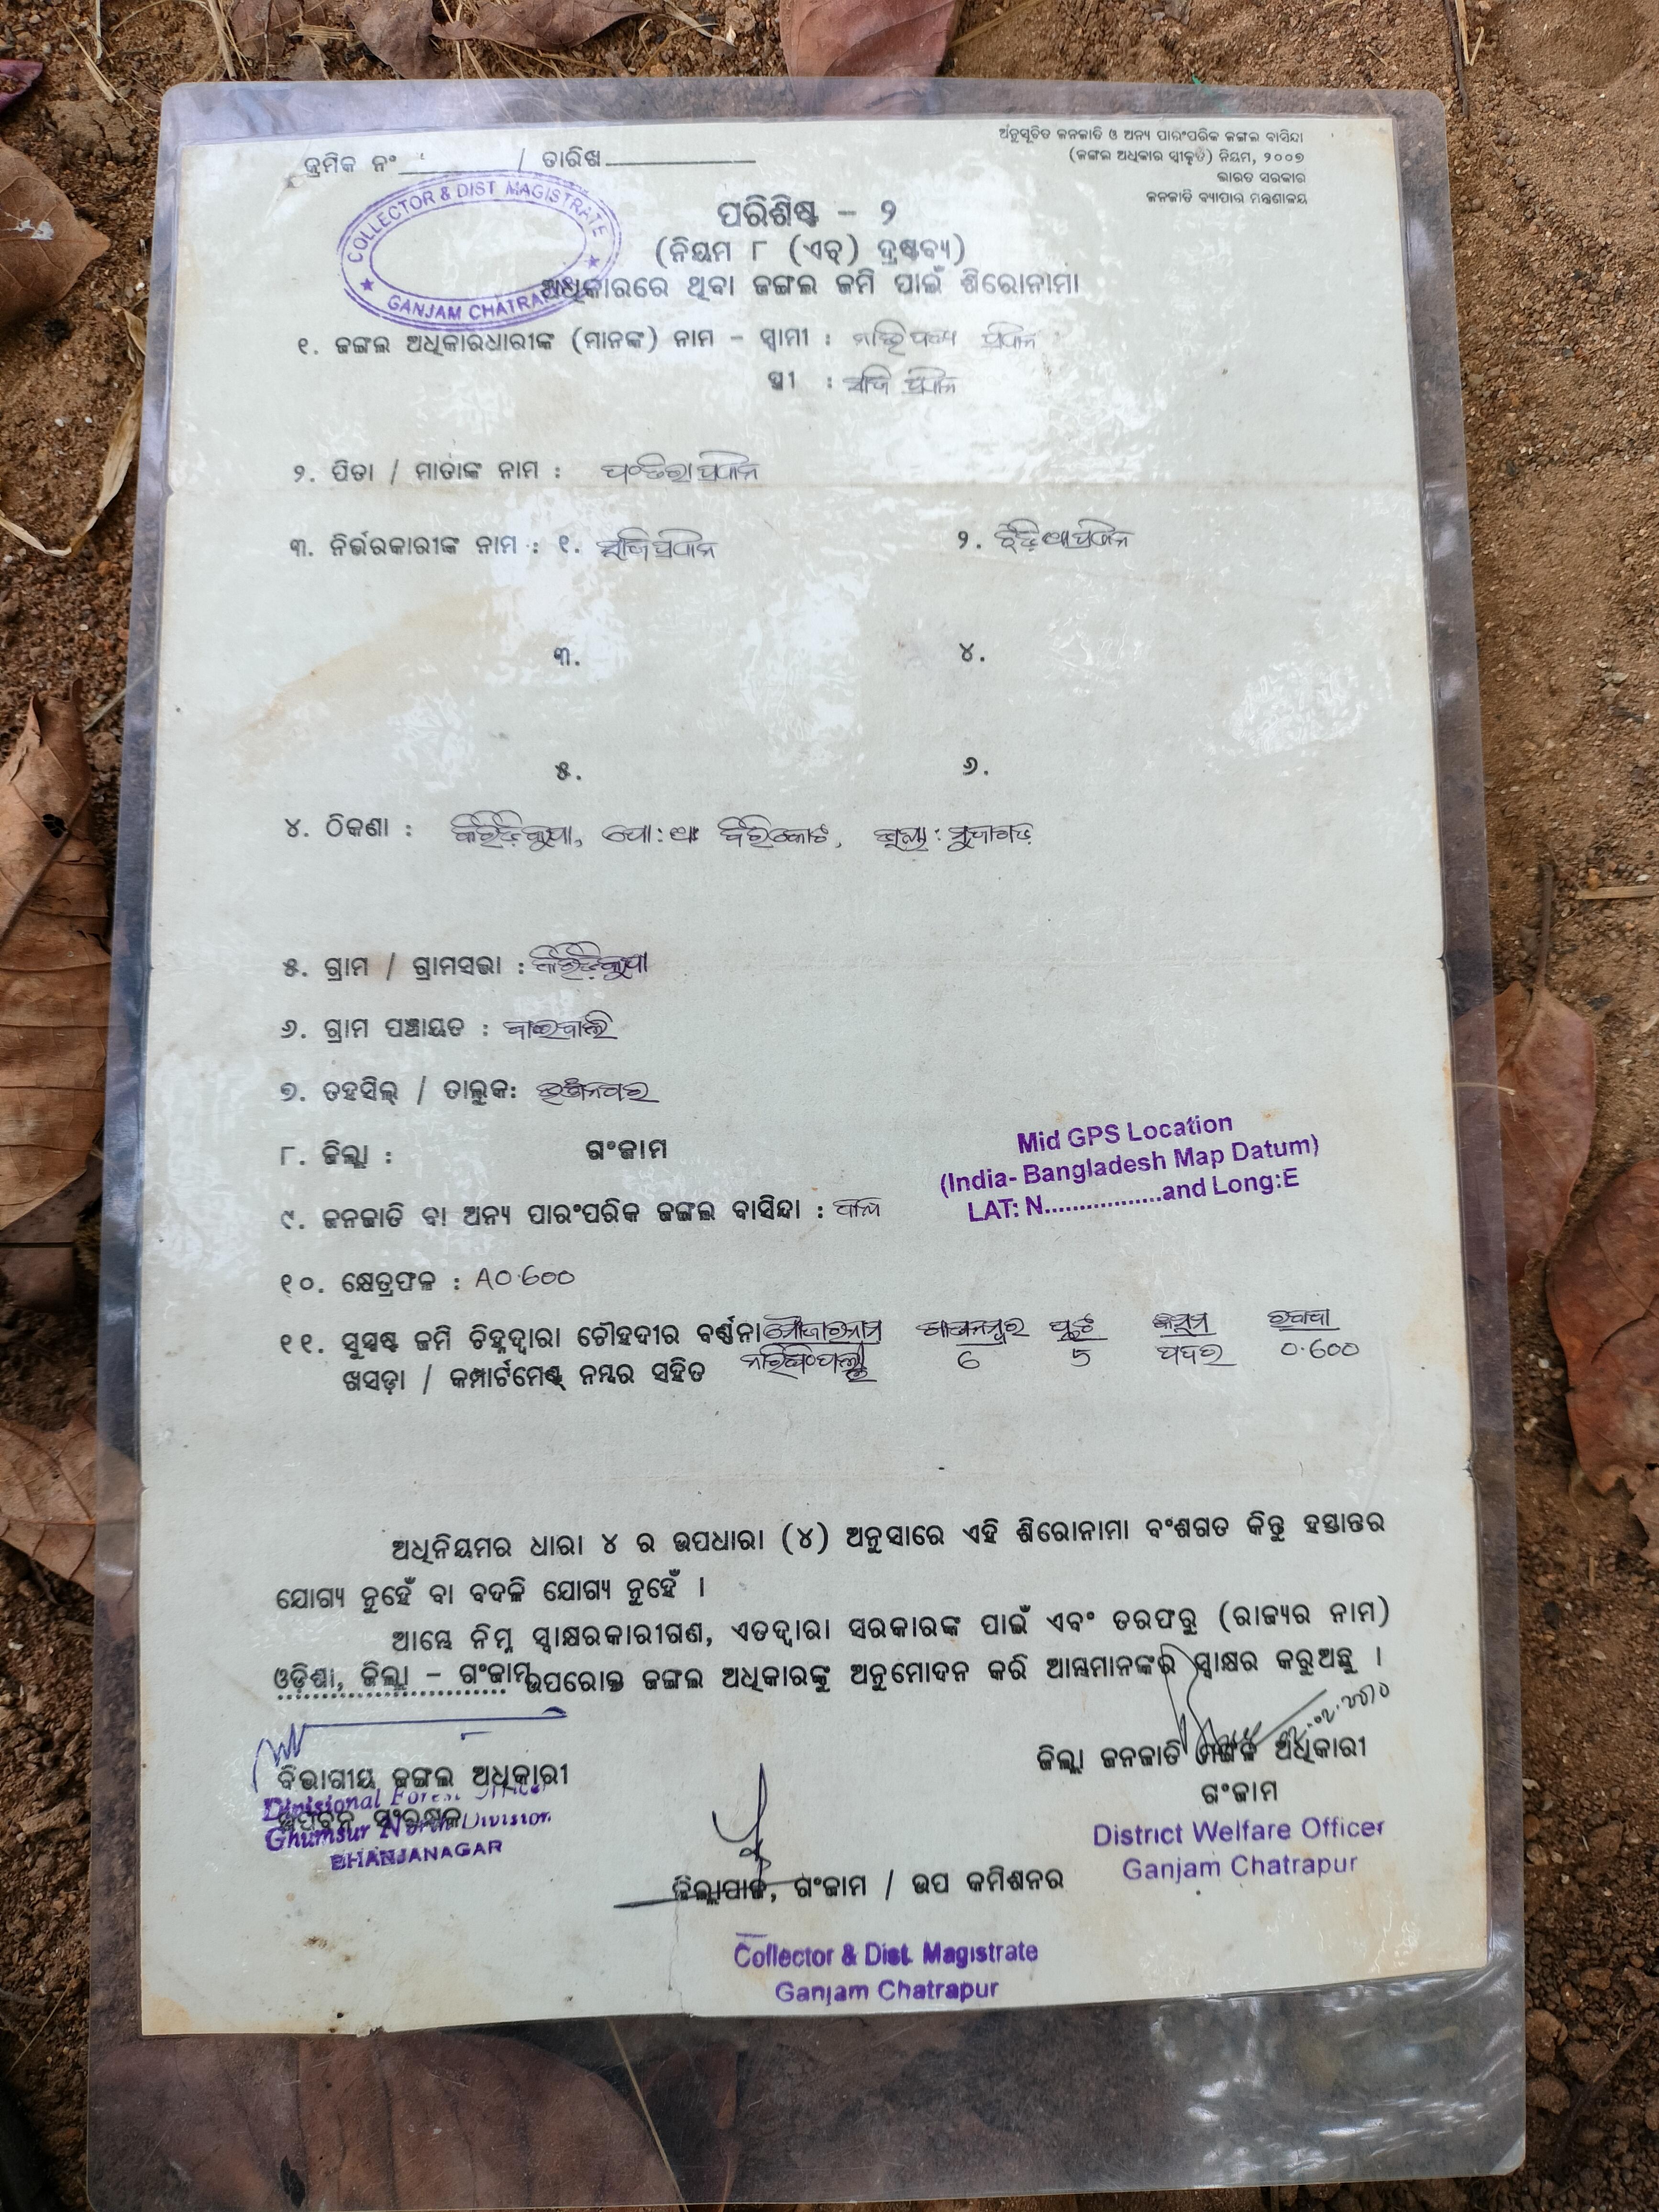 କ୍ରମିକ ନଂ / ତାରିଖ
ଅନୁସୂଚିତ ଜନଜାତି ଓ ଅନ୍ୟ ପାରଂପରିକ ଜଙ୍ଗଲ ବାସିନ୍ଦା
(ଜଙ୍ଗଲ ଅଧିକାର ସ୍ୱୀକୃତି) ନିୟମ, ୨୦୦୭
ଭାରତ ସରକାର
ଜନଜାତି ବ୍ୟାପାର ମନ୍ତ୍ରଣାଳୟ
COLLECTOR & DIST MAGISTRATE
GANJAM CHATRAPUR
ପରିଶିଷ୍ଟ – ୨
(ନିୟମ ୮ (ଏଚ୍) ଦ୍ରଷ୍ଟବ୍ୟ)
ଅଧିକାରରେ ଥିବା ଜଙ୍ଗଲ ଜମି ପାଇଁ ଶିରୋନାମା
୧. ଜଙ୍ଗଲ ଅଧିକାରଧାରୀଙ୍କ (ମାନଙ୍କ) ନାମ – ସ୍ୱାମୀ : ପ୍ରଧାନ
ସ୍ତ୍ରୀ : ପ୍ରଧାନ
୨. ପିତା / ମାତାଙ୍କ ନାମ : ପ୍ରଧାନ
୩. ନିର୍ଭରକାରୀଙ୍କ ନାମ : ୧. ପ୍ରଧାନ ୨. ପ୍ରଧାନ
୩. ୪.
୫. ୬.
୪. ଠିକଣା :
୫. ଗ୍ରାମ / ଗ୍ରାମସଭା :
୬. ଗ୍ରାମ ପଞ୍ଚାୟତ :
୭. ତହସିଲ୍ / ତାଲୁକ: ଭଞ୍ଜନଗର
୮. ଜିଲ୍ଲା : ଗଂଜାମ
Mid GPS Location
(India- Bangladesh Map Datum)
LAT: N.................and Long:E
୯. ଜନଜାତି ବା ଅନ୍ୟ ପାରଂପରିକ ଜଙ୍ଗଲ ବାସିନ୍ଦା :
୧୦. କ୍ଷେତ୍ରଫଳ : A0.600
୧୧. ସୁସ୍ପଷ୍ଟ ଜମି ଚିହ୍ନଦ୍ୱାରା ଚୌହଦୀର ବର୍ଣ୍ଣନା ମୌଜାରନାମ ଖାତାନମ୍ବର ପ୍ଲଟ କିସମ ରକବା
ଖସଡ଼ା / କମ୍ପାର୍ଟମେଣ୍ଟ ନମ୍ବର ସହିତ 6 5 ପଦର 0.600
ଅଧିନିୟମର ଧାରା ୪ ର ଉପଧାରା (୪) ଅନୁସାରେ ଏହି ଶିରୋନାମା ବଂଶଗତ କିନ୍ତୁ ହସ୍ତାନ୍ତର
ଯୋଗ୍ୟ ନୁହେଁ ବା ବଦଳି ଯୋଗ୍ୟ ନୁହେଁ ।
ଆମ୍ଭେ ନିମ୍ନ ସ୍ୱାକ୍ଷରକାରୀଗଣ, ଏତଦ୍ୱାରା ସରକାରଙ୍କ ପାଇଁ ଏବଂ ତରଫରୁ (ରାଜ୍ୟର ନାମ)
ଓଡ଼ିଶା, ଜିଲ୍ଲା – ଗଂଜାମ ଉପରୋକ୍ତ ଜଙ୍ଗଲ ଅଧିକାରଙ୍କୁ ଅନୁମୋଦନ କରି ଆମ୍ଭମାନଙ୍କର ସ୍ୱାକ୍ଷର କରୁଅଛୁ ।
ବିଭାଗୀୟ ଜଙ୍ଗଲ ଅଧିକାରୀ
Divisional Forest Officer
Ghumsur North Division
BHANJANAGAR
ଜିଲ୍ଲା ଜନଜାତି ମଙ୍ଗଳ ଅଧିକାରୀ
ଗଂଜାମ
District Welfare Officer
Ganjam Chatrapur
ଜିଲ୍ଲାପାଳ, ଗଂଜାମ / ଉପ କମିଶନର
Collector & Dist. Magistrate
Ganjam Chatrapur